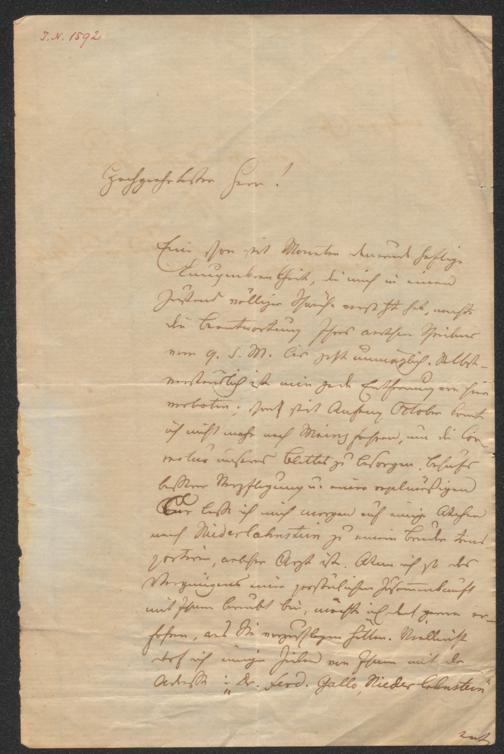 J. N. 1592
Hochgeehrtester Herr!
Eine schon seit Monaten dauernde heftige
Lungenkrankheit, die mich in einen
Zustand völliger Schwäche versetzt hat, machte
die Beantwortung Ihres werthen Schreibens
vom 9. d. M. bis jetzt unmöglich. Selbst-
verständlich ist mir jede Entfernung vom Hause
verboten. Schon seit Anfang October konnte
ich nicht mehr nach Mainz fahren, um die Cor-
rectur unseres Blattes zu besorgen. Behufs
besserer Verpflegung u. einer regelmäßigen
Cur lasse ich mich morgen auf einige Wochen
nach Niederlahnstein zu einem Bruder trans-
portiren, welcher Arzt ist. Wenn ich so des
Vergnügens einer persönlichen Zusammenkunft
mit Ihnen beraubt bin, möchte ich doch gerne er-
fahren, was Sie vorzuschlagen hätten. Vielleicht
darf ich einige Zeilen von Ihnen mit der
Adresse: "Dr. Ferd. Gallo, Niederlahnstein"